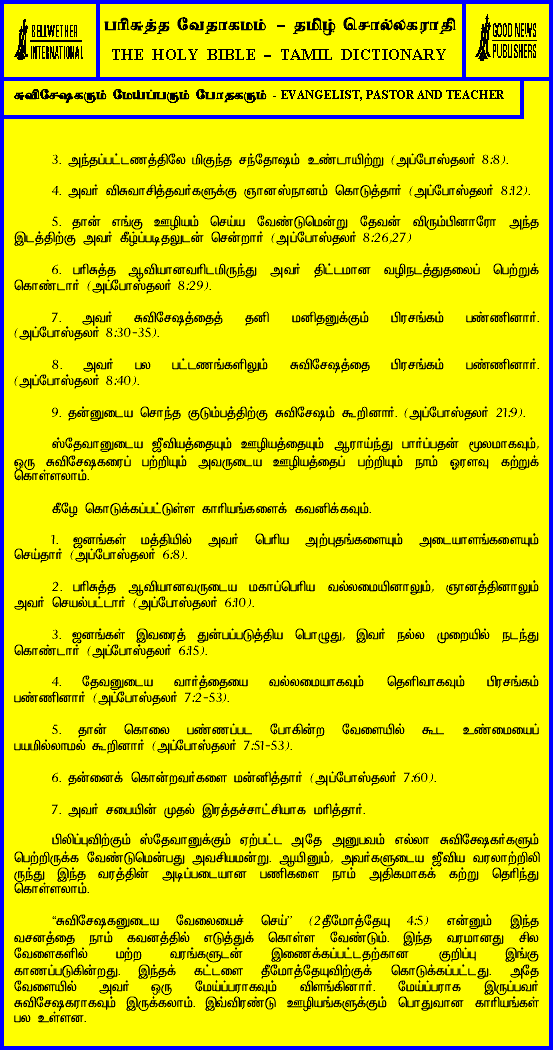 BELLWETHER
INTERNATIONAL
பரிசுத்த வேதாகமம் – தமிழ் சொல்லகராதி
THE HOLY BIBLE – TAMIL DICTIONARY
GOOD NEWS
PUBLISHERS
சுவிசேஷகரும் மேய்ப்பரும் போதகரும் - EVANGELIST, PASTOR AND TEACHER
3. அந்தப்பட்டணத்திலே மிகுந்த சந்தோஷம் உண்டாயிற்று (அப்போஸ்தலர் 8:8).
4. அவர் விசுவாசித்தவர்களுக்கு ஞானஸ்நானம் கொடுத்தார் (அப்போஸ்தலர் 8:12).
5. தான் எங்கு ஊழியம் செய்ய வேண்டுமென்று தேவன் விரும்பினாரோ அந்த
இடத்திற்கு அவர் கீழ்ப்படிதலுடன் சென்றார் (அப்போஸ்தலர் 8:26,27)
6. பரிசுத்த ஆவியானவரிடமிருந்து அவர் திட்டமான வழிநடத்துதலைப் பெற்றுக்
கொண்டார் (அப்போஸ்தலர் 8:29).
7. அவர் சுவிசேஷத்தைத் தனி மனிதனுக்கும் பிரசங்கம் பண்ணினார்.
(அப்போஸ்தலர் 8:30-35).
8. அவர் பல பட்டணங்களிலும் சுவிசேஷத்தை பிரசங்கம் பண்ணினார்.
(அப்போஸ்தலர் 8:40).
9. தன்னுடைய சொந்த குடும்பத்திற்கு சுவிசேஷம் கூறினார். (அப்போஸ்தலர் 21:9).
ஸ்தேவானுடைய ஜீவியத்தையும் ஊழியத்தையும் ஆராய்ந்து பார்ப்பதன் மூலமாகவும்,
ஒரு சுவிசேஷகரைப் பற்றியும் அவருடைய ஊழியத்தைப் பற்றியும் நாம் ஓரளவு கற்றுக்
கொள்ளலாம்.
கீழே கொடுக்கப்பட்டுள்ள காரியங்களைக் கவனிக்கவும்.
1. ஜனங்கள் மத்தியில் அவர் பெரிய அற்புதங்களையும் அடையாளங்களையும்
செய்தார் (அப்போஸ்தலர் 6:8).
2. பரிசுத்த ஆவியானவருடைய மகாப்பெரிய வல்லமையினாலும், ஞானத்தினாலும்
அவர் செயல்பட்டார் (அப்போஸ்தலர் 6:10).
3. ஜனங்கள் இவரைத் துன்பப்படுத்திய பொழுது, இவர் நல்ல முறையில் நடந்து
கொண்டார் (அப்போஸ்தலர் 6:15).
4. தேவனுடைய வார்த்தையை வல்லமையாகவும் தெளிவாகவும் பிரசங்கம்
பண்ணினார் (அப்போஸ்தலர் 7:2-53).
5. தான் கொலை பண்ணப்பட போகின்ற வேளையில் கூட உண்மையைப்
பயமில்லாமல் கூறினார் (அப்போஸ்தலர் 7:51-53).
6. தன்னைக் கொன்றவர்களை மன்னித்தார் (அப்போஸ்தலர் 7:60).
7. அவர் சபையின் முதல் இரத்தச்சாட்சியாக மரித்தார்.
பிலிப்புவிற்கும் ஸ்தேவானுக்கும் ஏற்பட்ட அதே அனுபவம் எல்லா சுவிக்ஷேகர்களும்
பெற்றிருக்க வேண்டுமென்பது அவசியமன்று. ஆயினும், அவர்களுடைய ஜீவிய வரலாற்றிலி
ருந்து இந்த வரத்தின் அடிப்படையான பணிகளை நாம் அதிகமாகக் கற்று தெரிந்து
கொள்ளலாம்.
“சுவிசேஷகனுடைய வேலையைச் செய்” (2தீமோத்தேயு 4:5) என்னும் இந்த
வசனத்தை நாம் கவனத்தில் எடுத்துக் கொள்ள வேண்டும். இந்த வரமானது சில
வேளைகளில் மற்ற வரங்களுடன் இணைக்கப்பட்டதற்கான குறிப்பு இங்கு
காணப்படுகின்றது. இந்தக் கட்டளை தீமோத்தேயுவிற்குக் கொடுக்கப்பட்டது. அதே
வேளையில் அவர் ஒரு மேய்ப்பராகவும் விளங்கினார். மேய்ப்பராக இருப்பவர்
சுவிசேஷகராகவும் இருக்கலாம். இவ்விரண்டு ஊழியங்களுக்கும் பொதுவான காரியங்கள்
பல உள்ளன.